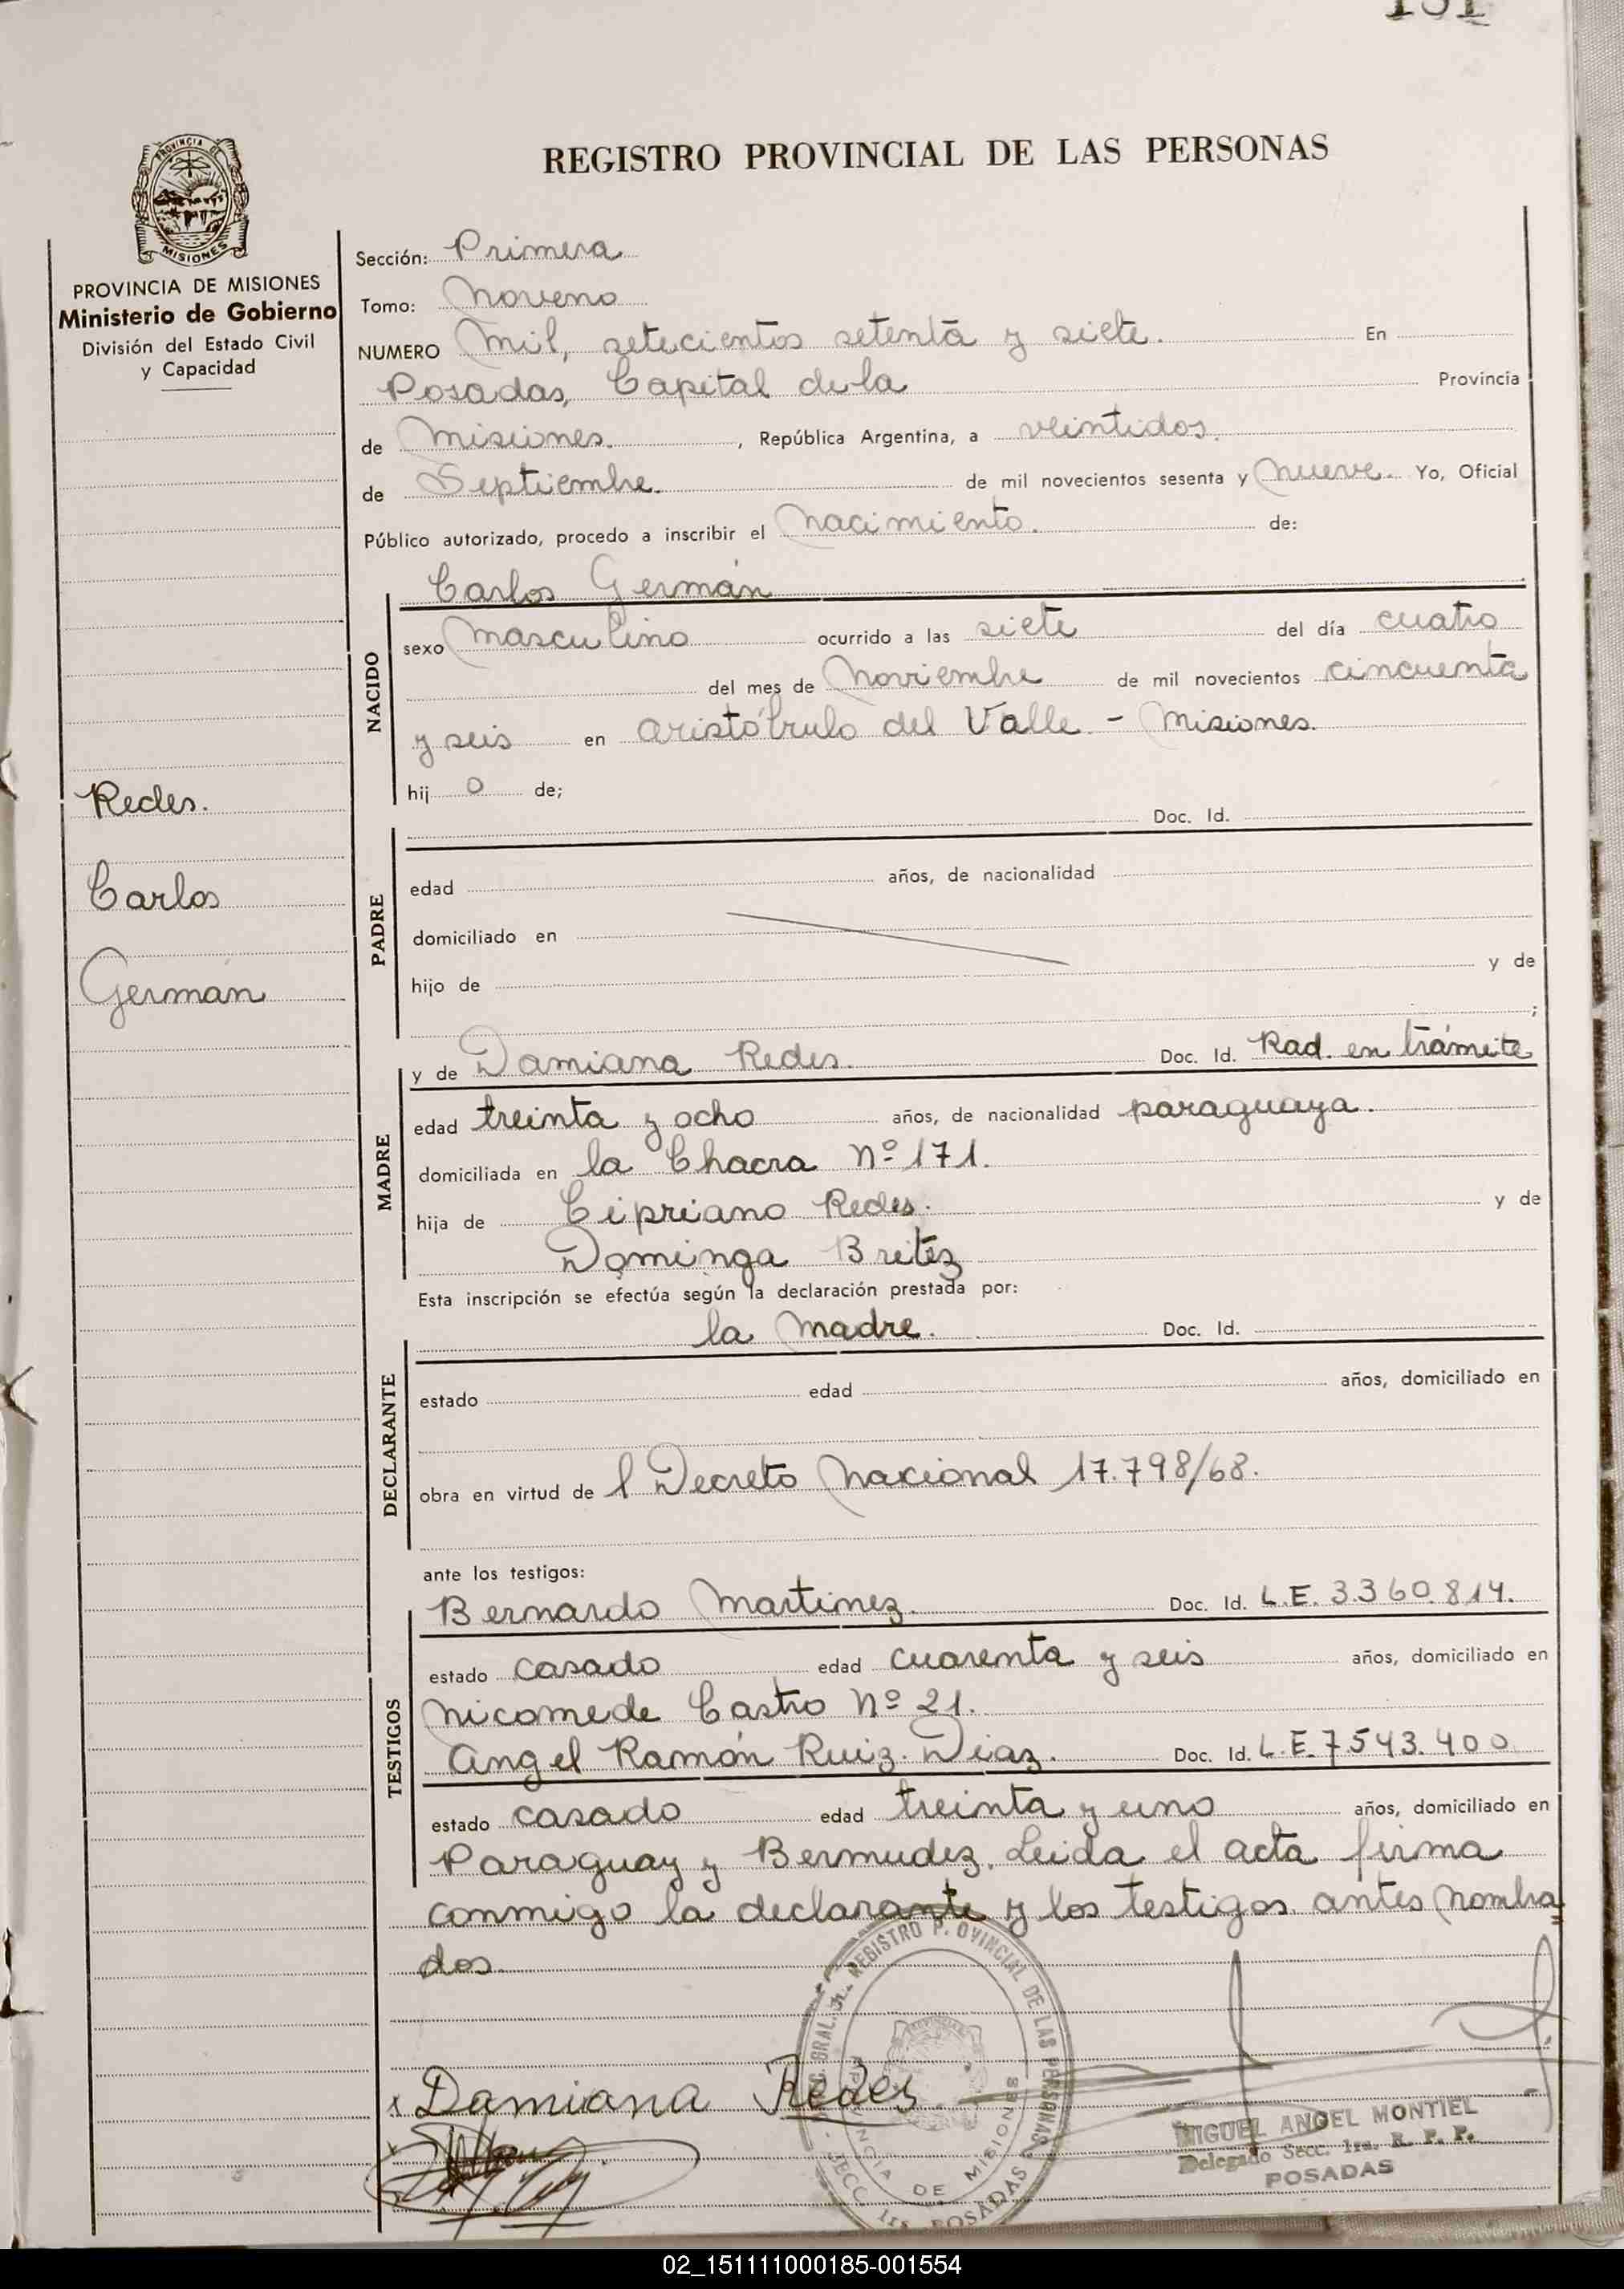 151
PROVINCIA DE
MISIONES
REGISTRO PROVINCIAL DE LAS PERSONAS
PROVINCIA DE MISIONES
Ministerio de Gobierno
División del Estado Civil
y Capacidad
Sección: Primera
Tomo: Noveno
NUMERO Mil, setecientos setenta y siete. En
Posadas, Capital de la Provincia
de Misiones. , República Argentina, a veintidos.
de Septiembre. de mil novecientos sesenta y nueve. Yo, Oficial
Público autorizado, procedo a inscribir el nacimiento. de:
NACIDO
Carlos Germán
sexo masculino ocurrido a las siete del día cuatro
del mes de Noviembre de mil novecientos cincuenta
y seis en Aristóbulo del Valle - Misiones.
hij o de;
Redes.
Carlos
Germán
PADRE
Doc. Id.
edad años, de nacionalidad
domiciliado en
hijo de y de
;
MADRE
y de Damiana Redes. Doc. Id. Rad. en trámite
edad treinta y ocho años, de nacionalidad paraguaya.
domiciliada en la Chacra Nº 171.
hija de Cipriano Redes. y de
Dominga Britez
Esta inscripción se efectúa según la declaración prestada por:
DECLARANTE
la madre. Doc. Id.
estado edad años, domiciliado en
obra en virtud de l Decreto Nacional 17.798/68.
ante los testigos:
TESTIGOS
Bernardo Martinez. Doc. Id. L.E. 3.360.814.
estado casado edad cuarenta y seis años, domiciliado en
Nicomede Castro Nº 21.
Angel Ramón Ruiz Diaz. Doc. Id. L.E. 7543.400
estado casado edad treinta y uno años, domiciliado en
Paraguay y Bermudez. Leida el acta firma
conmigo la declarante y los testigos antes nombra
dos.
GRAL. REGISTRO P. OVINCIAL DE LAS PERSONAS
SECC. 1ra. POSADAS
PROVINCIA DE MISIONES
x Damiana Redes
MIGUEL ANGEL MONTIEL
Delegado Secc. 1ra. R. P. P.
POSADAS
02_151111000185-001554